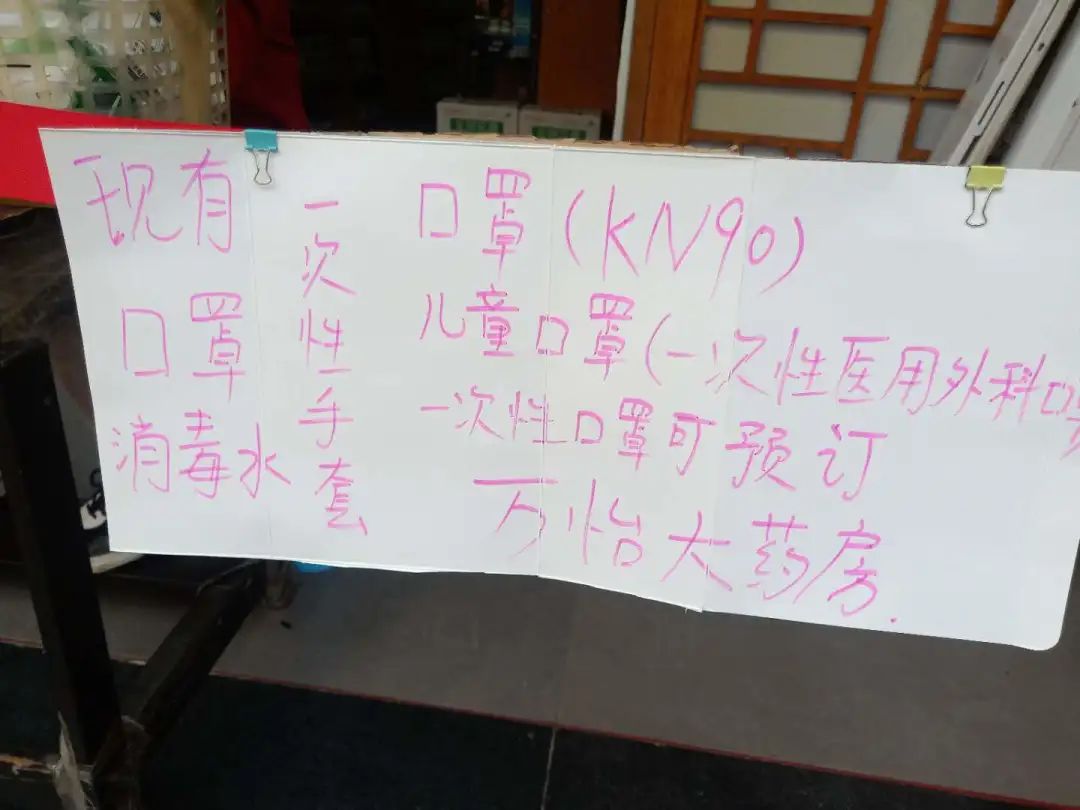 现有
口罩
消毒水
一次性手套
口罩(KN90)
儿童口罩(一次性医用外科口罩
一次性口罩可预订
万怡大药房.